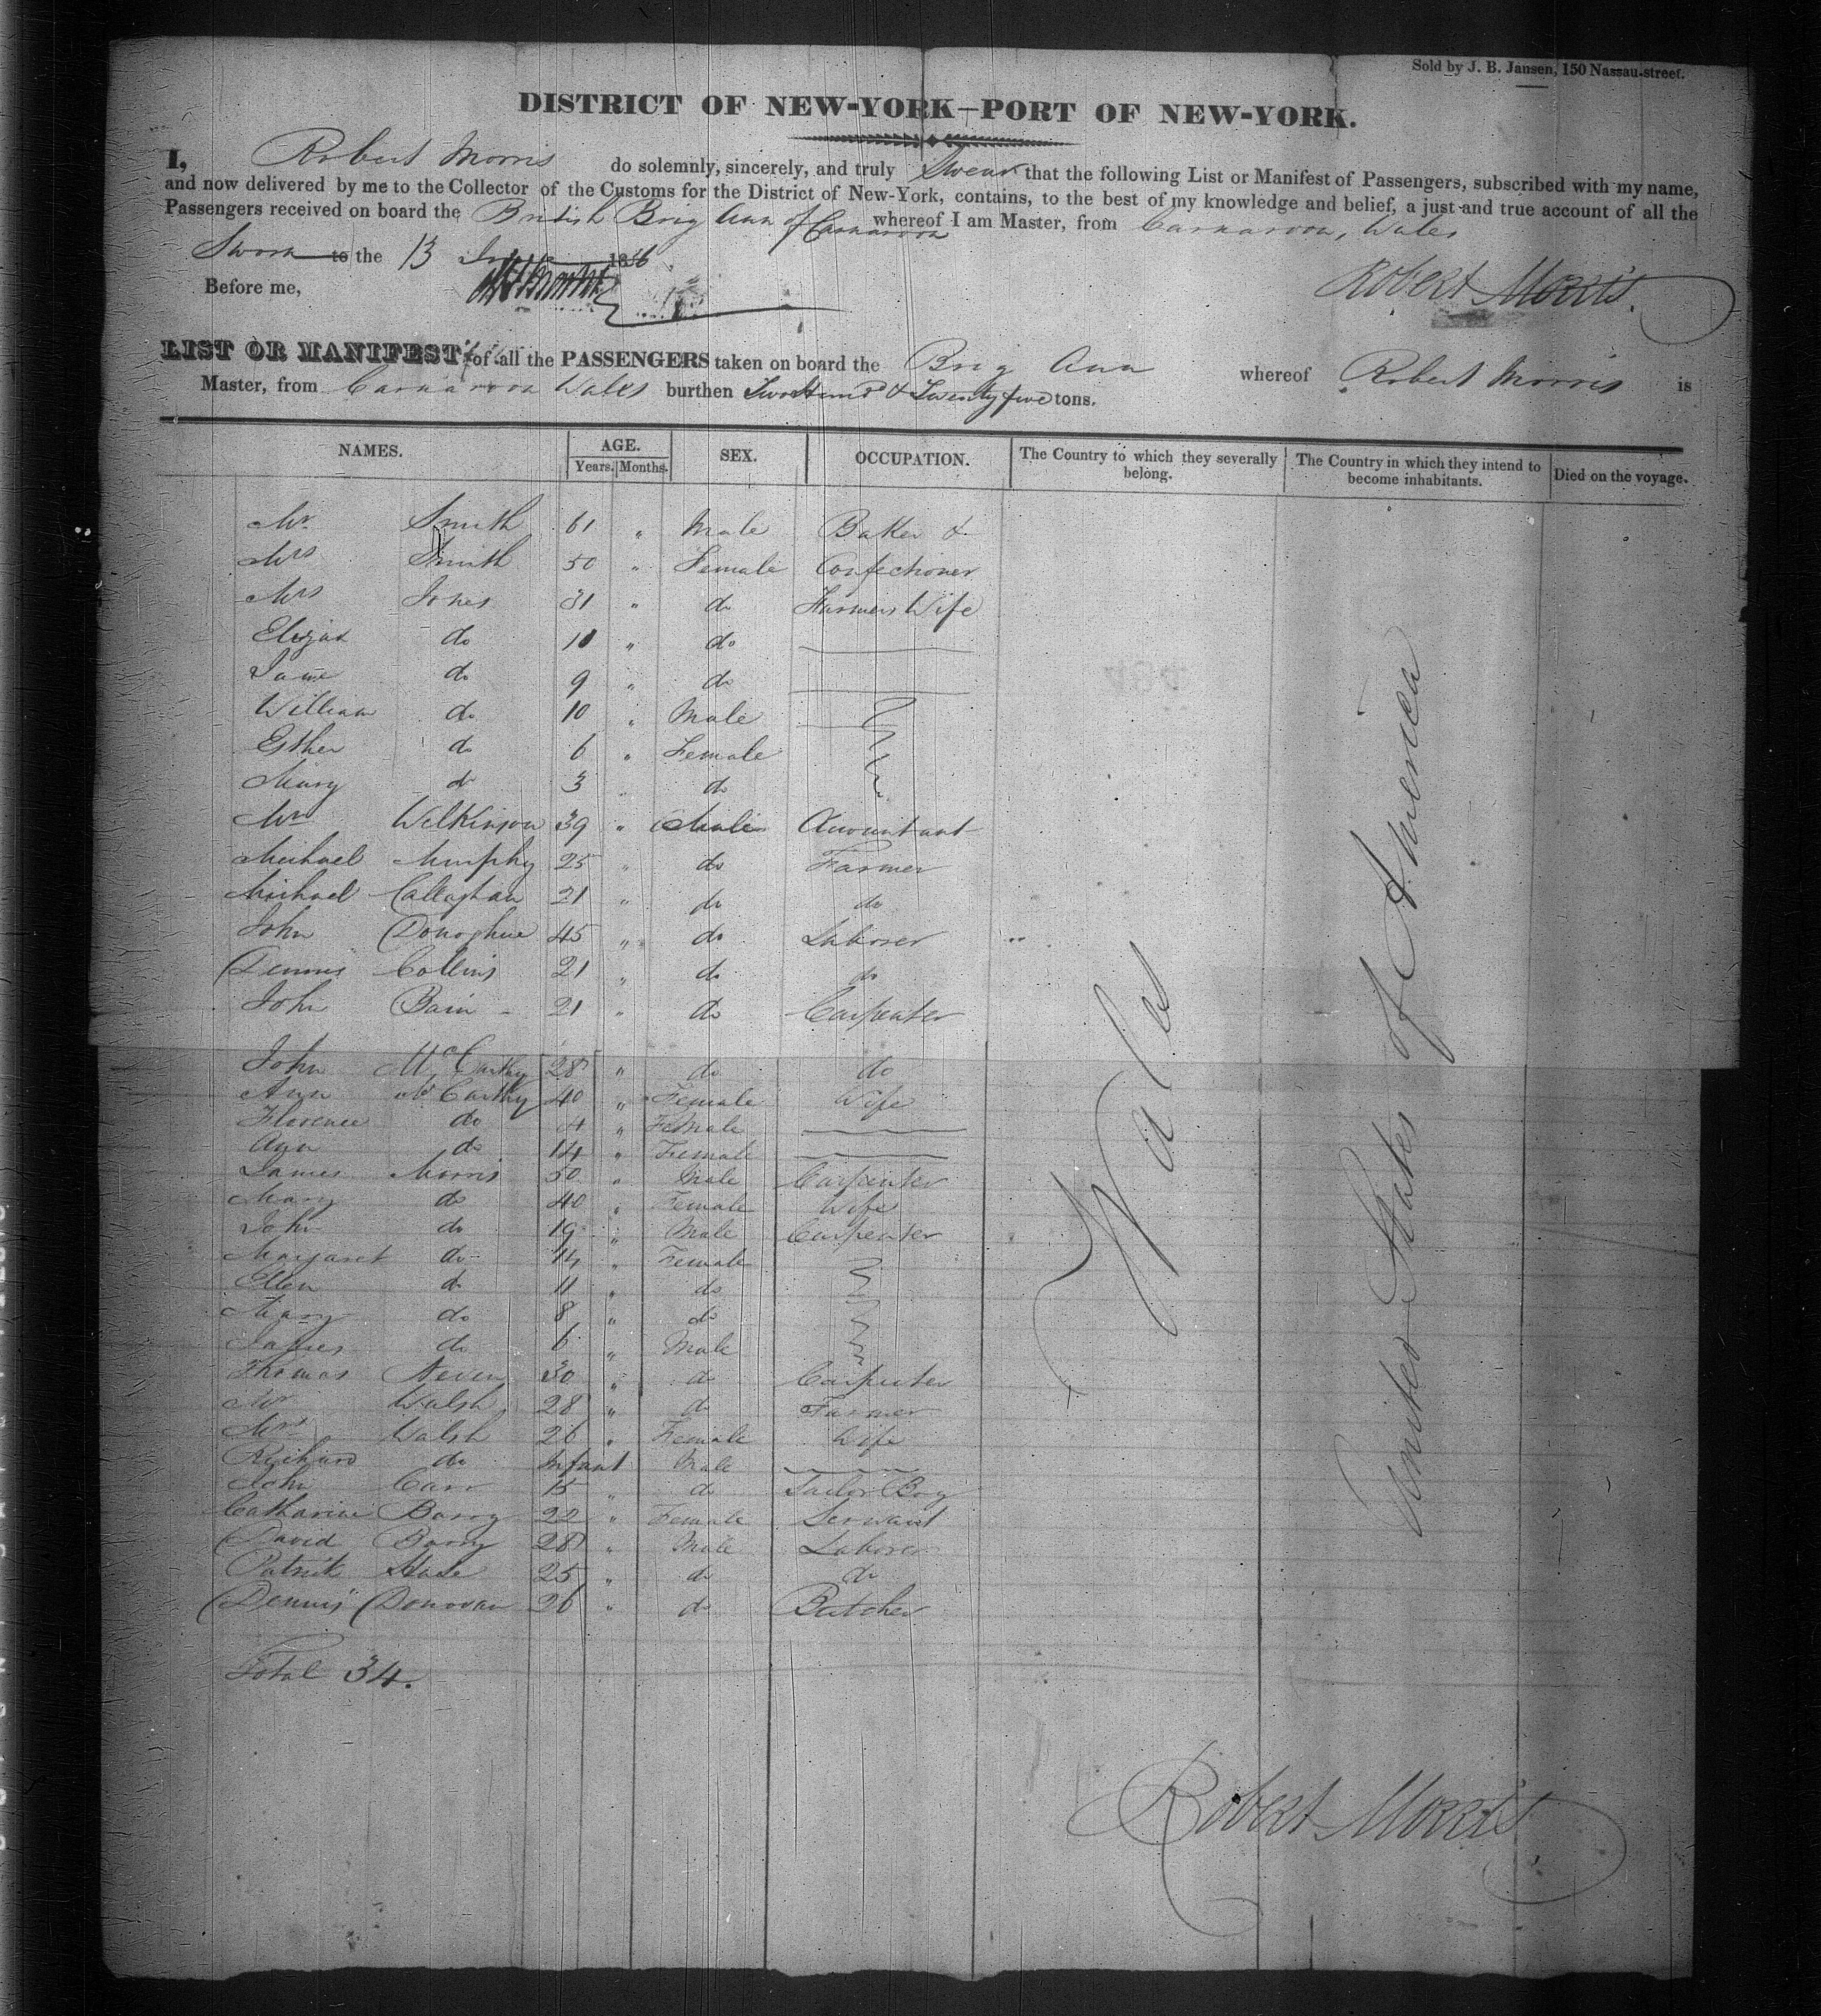 Sold by J. B. Jansen, 150 Nassau-street.
DISTRICT OF NEW-YORK—PORT OF NEW-YORK.
I, Robert Morris do solemnly, sincerely, and truly Swear that the following List or Manifest of Passengers, subscribed with my name,
and now delivered by me to the Collector of the Customs for the District of New-York, contains, to the best of my knowledge and belief, a just and true account of all the
Passengers received on board the British Brig Ann of Carnarvon whereof I am Master, from Carnarvon, Wales
Sworn to the 13 1836
Before me,
Robert Morris.
LIST OR MANIFEST of all the PASSENGERS taken on board the Brig Ann whereof Robert Morris is
Master, from Carnarvon Wales burthen Two Hund & Twenty five tons.
NAMES. AGE. SEX. OCCUPATION. The Country to which they severally belong. The Country in which they intend to become inhabitants. Died on the voyage.
Years. Months.
Mr Smith 61 " Male Baker &
Mrs Smith 50 " Female Confectioner
Mrs Jones 31 " do Farmers Wife
do 10 " do
Jane do 9 " do
William do 10 " Male
Esther do 6 " Female
Mary do 3 " do
Mr Wilkinson 39 " Male Accountant
Michael Murphy 25 " do Farmer
Michael Callaghan 21 " do do
John Donoghue 45 " do Laborer
Dennis Collins 21 " do do
John Bain 21 " do Carpenter
John McCarthy 28 " do do
Ann McCarthy 40 " Female Wife
Florence do " Female
Ann do 14 " Female
James Morris 50 " Male Carpenter
Mary do 40 " Female Wife
John do 19 " Male Carpenter
Margaret do 14 " Female
Ellen do 11 " do
Mary do 8 " do
James do 6 " Male
Thomas 30 " do Carpenter
Mr Walsh 28 " do Farmer
Mrs Walsh 26 " Female Wife
Richard do Infant Male
John Carr 15 " do Tailor Boy
Catharine Barry 22 " Female Servant
David Barry 28 " Male Laborer
Patrick 25 " do do
Dennis Donovan 26 " do Butcher
Wales
United States of America
Total 34.
Robert Morris